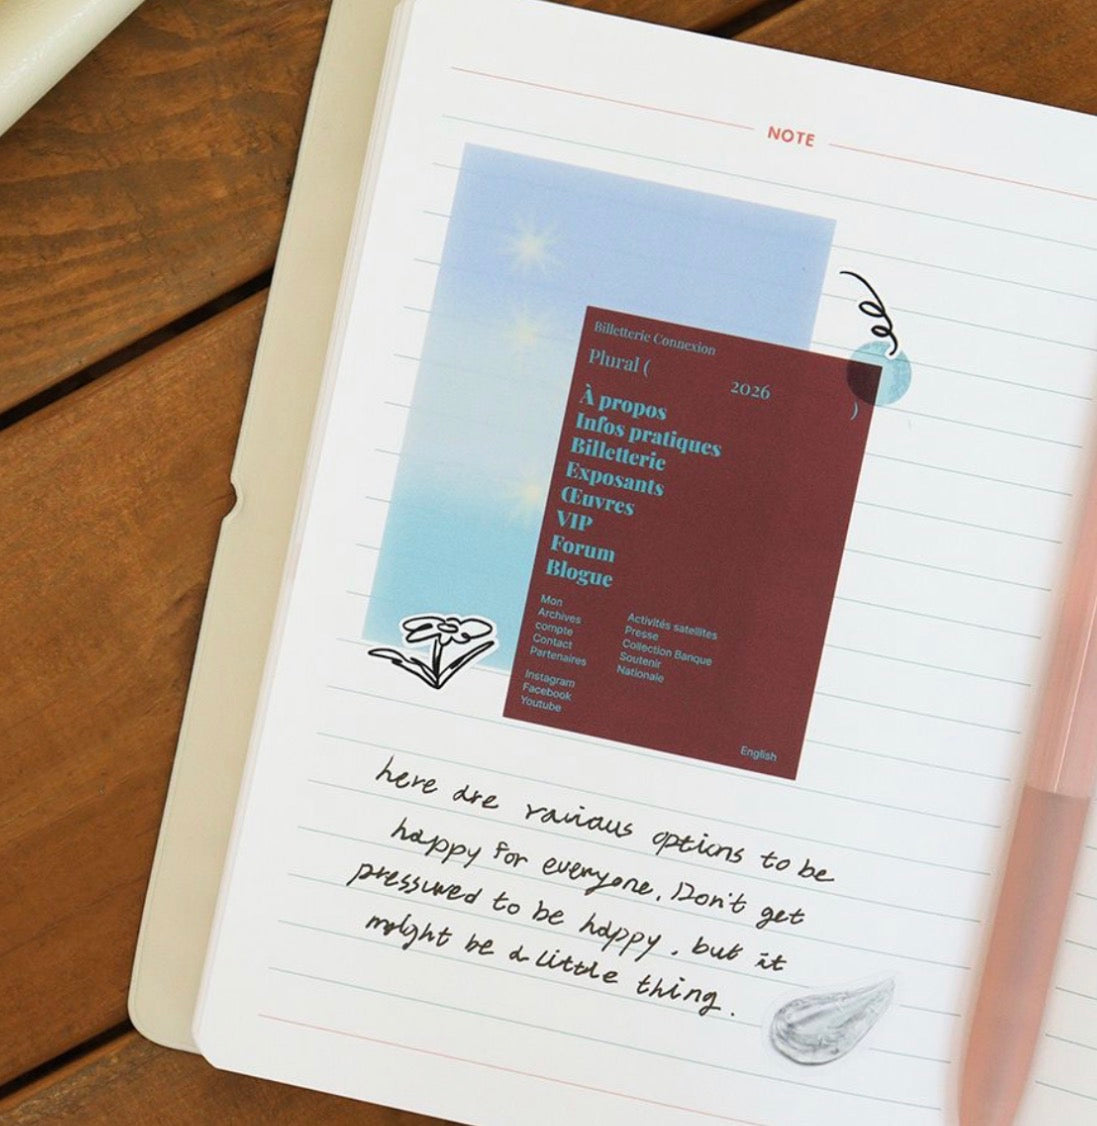 NOTE
Billetterie Connexion
Plural (
2026
)
À propos
Infos pratiques
Billetterie
Exposants
Œuvres
VIP
Forum
Blogue
Mon
Archives
compte
Contact
Partenaires
Activités satellites
Presse
Collection Banque
Soutenir
Nationale
Instagram
Facebook
Youtube
English
here are various options to be
happy for everyone. Don't get
pressured to be happy. but it
might be a little thing.